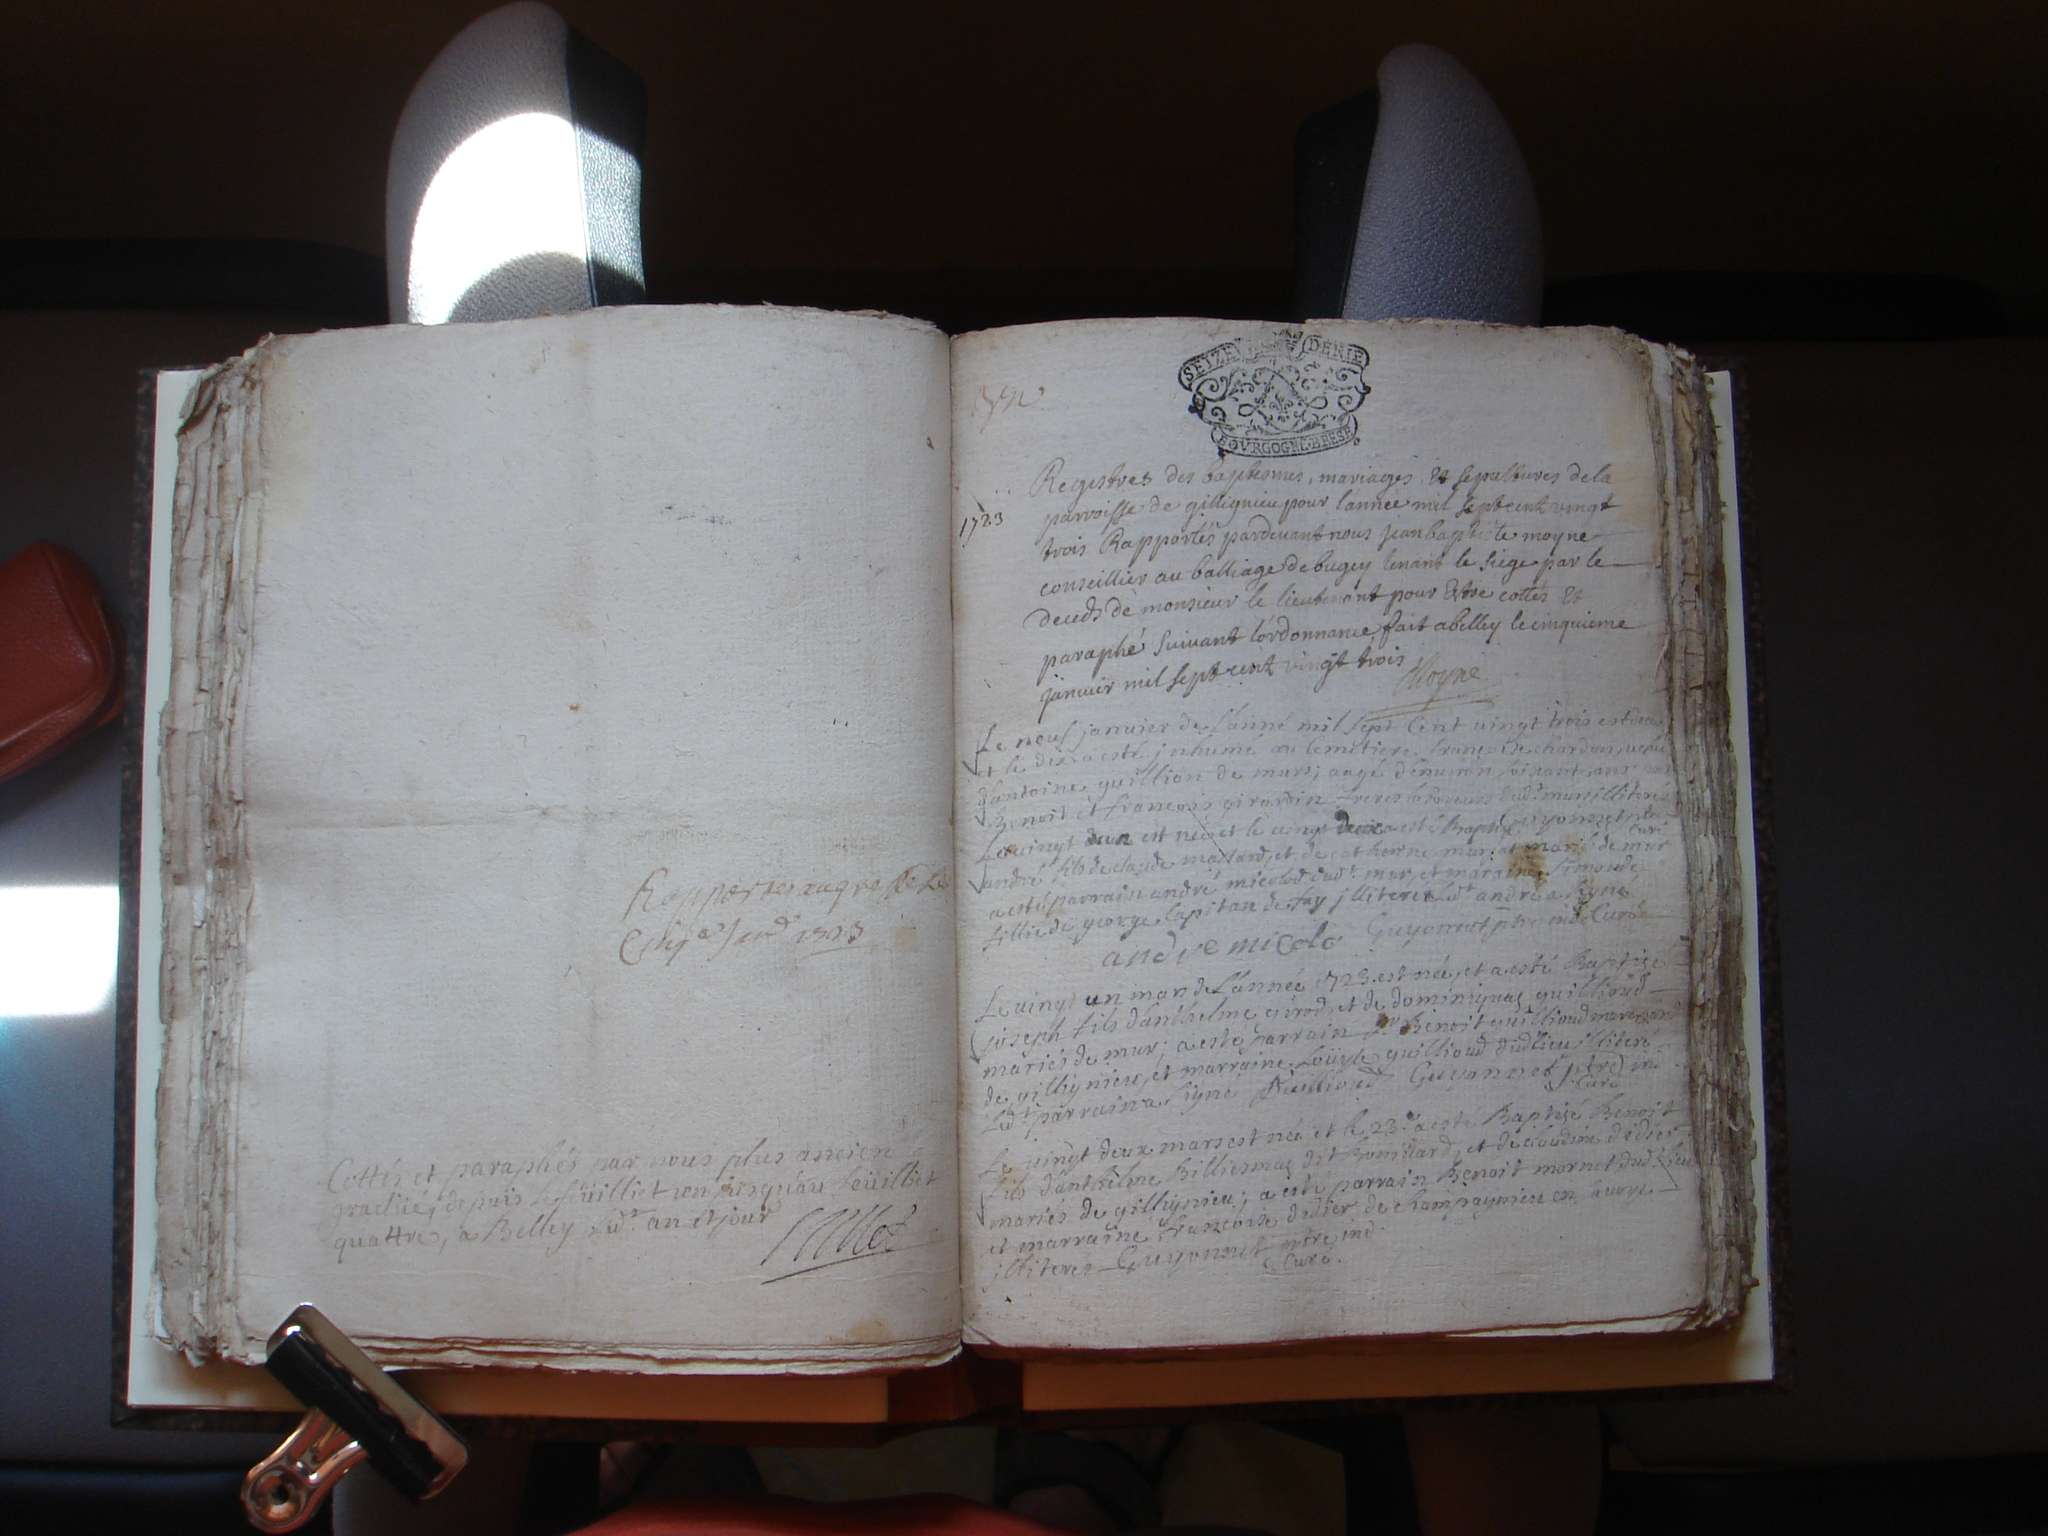 Rapportes au greffe le
Cinq.e Janv. 1723
Cottés et paraphés par nous plus ancien
gradué, depuis le feuilliet un jusquau feuilliet
quattre, a Belley lud.t an et jour
SEIZE DENIE
BOVRGOGNE BRESE
1723
Registres des baptesmes, mariages, et sepultures de la
parroisse de gillignieu pour lannee mil sept cent vingt
trois Rapportés pardevant nous jean baptiste moyne
conseillier au balliage de bugey tenant le siege par le
deceds de monsieur le lieutenant pour Estre cottés et
paraphé suivant lordonnance, fait a belley le cinquieme
janvier mil sept cent vingt trois
Moyne
Le neuf janvier de lanné mil sept cent vingt trois est
et le dix a esté jnhumé au cemetiere françoise chardon
dantoine guillion de murs; aagé denviron soisant ans
Benoit et françois girardin freres laboureurs dud.t murs illiterés
Le vingt deux est né et le vingt a esté Baptisé
Curé
andré fils de claude mollard, et de catherine mariés de mur
a esté parrain andré micolod dud.t mur, et marraine
fillie de george Capitan de fay jlliterée Led.t andré a signé
andre micolo Guyonnet ptre ind. Curé
Le vingt un mars de lannée 1723 est né, et a esté Baptisé
joseph fils danthelme girod, et de dominique guillioud
mariés de mur; a esté parrain Benoit guillioud
de gillignieu, et marraine Louyse guillioud dud. lieu illitere
Led.t parrain a signé Guillioud Guyonnet ptre ind.
Curé
Le vingt deux mars est né et le 23.e a esté Baptisé Benoit
fils danthelme Billiemaz dit Rouillard, et de claudine didier
mariés de gillignieu; a esté parrain Benoit mornet dud. lieu
et marraine françoise didier de champagnieu en
jlliteres Guyonnet ptre ind.
Curé.